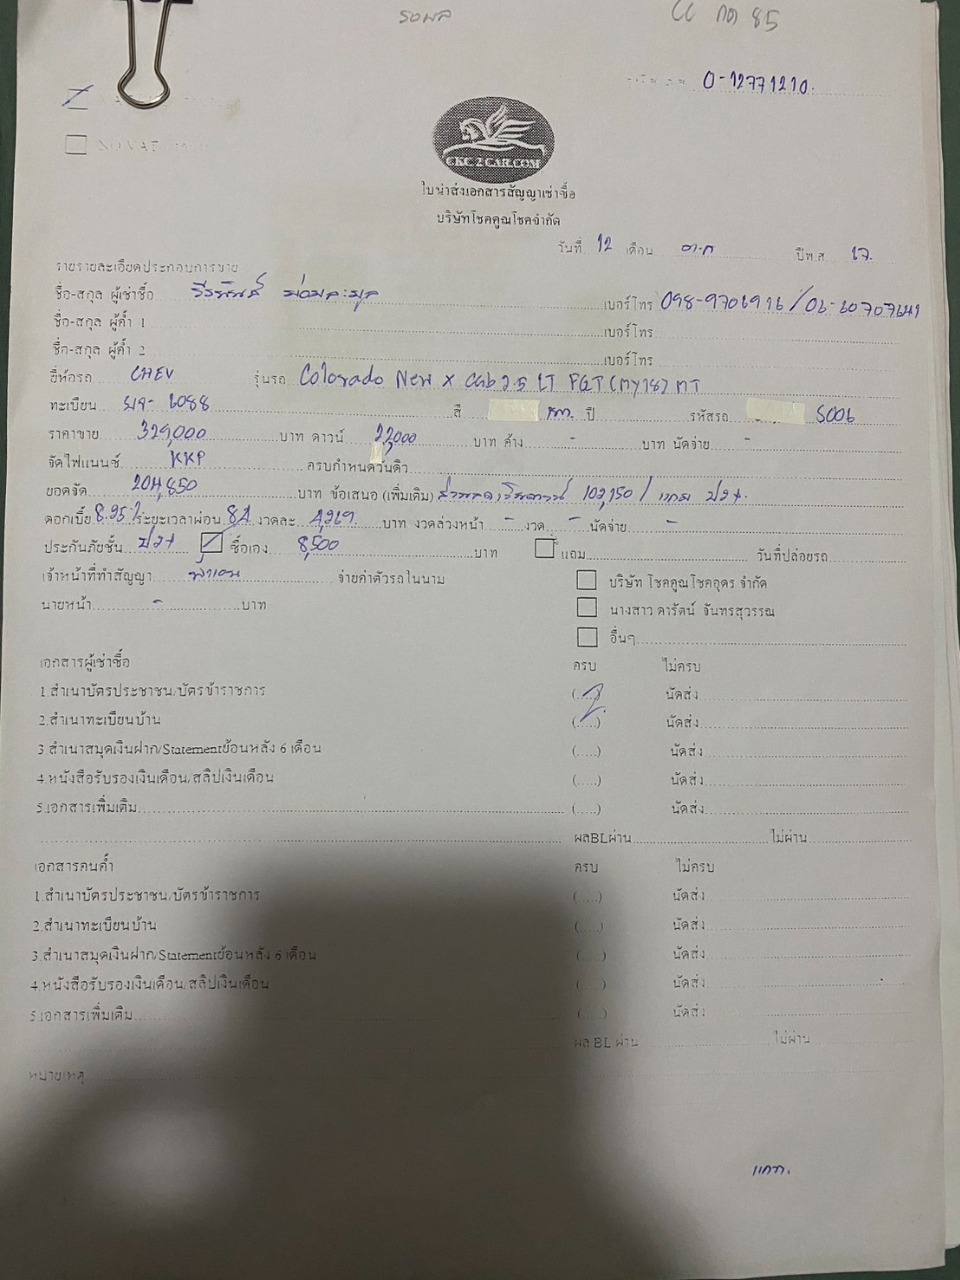 รอผล
0-12771210.
NO VAT
CKC 2 CAR.COM
ใบนำส่งเอกสารสัญญาเช่าซื้อ
บริษัทโชคคูณโชคจำกัด
วันที่ 12 เดือน ต.ค ปีพ.ศ 67.
รายรายละเอียดประกอบการขาย
ชื่อ-สกุล ผู้เช่าซื้อ เบอร์โทร
ชื่อ-สกุล ผู้ค้ำ 1 เบอร์โทร
ชื่อ-สกุล ผู้ค้ำ 2 เบอร์โทร
ยี่ห้อรถ CHEV รุ่นรถ Colorado New X Cab 2.5 LT FGT (MY18) MT
ทะเบียน 6088 สี ปี รหัสรถ 5006
ราคาขาย 329,000 บาท ดาวน์ 22,000 บาท ค้าง - บาท นัดจ่าย -
จัดไฟแนนซ์ KKP ครบกำหนดวันคิว
ยอดจัด 204,850 บาท ข้อเสนอ (เพิ่มเติม) 102,150 / ป2+.
ดอกเบี้ย 8.25% ระยะเวลาผ่อน 84 งวดละ 4,269. บาท งวดล่วงหน้า - งวด - นัดจ่าย -
ประกันภัยชั้น ป2+ ซื้อเอง 8,500 บาท แถม วันที่ปล่อยรถ
เจ้าหน้าที่ทำสัญญา จ่ายค่าตัวรถในนาม บริษัท โชคคูณโชคอุดร จำกัด
นายหน้า - บาท นางสาว ดารัตน์ จันทรสุวรรณ
อื่นๆ
เอกสารผู้เช่าซื้อ ครบ ไม่ครบ
1.สำเนาบัตรประชาชน/บัตรข้าราชการ (.....) นัดส่ง
2.สำเนาทะเบียนบ้าน (.....) นัดส่ง
3.สำเนาสมุดเงินฝาก/Statementย้อนหลัง 6 เดือน (.....) นัดส่ง
4.หนังสือรับรองเงินเดือน/สลิปเงินเดือน (.....) นัดส่ง
5.เอกสารเพิ่มเติม (.....) นัดส่ง
ผลBLผ่าน ไม่ผ่าน
เอกสารคนค้ำ ครบ ไม่ครบ
1.สำเนาบัตรประชาชน/บัตรข้าราชการ (.....) นัดส่ง
2.สำเนาทะเบียนบ้าน (.....) นัดส่ง
3.สำเนาสมุดเงินฝาก/Statementย้อนหลัง 6 เดือน (.....) นัดส่ง
4.หนังสือรับรองเงินเดือน/สลิปเงินเดือน (.....) นัดส่ง
5.เอกสารเพิ่มเติม (.....) นัดส่ง
ผล BL ผ่าน ไม่ผ่าน
หมายเหตุ